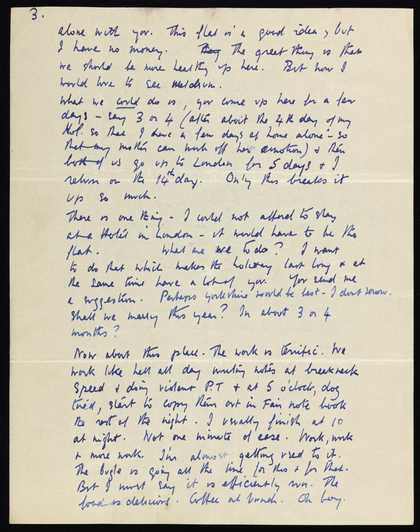 3.
alone with you. This flat is a good idea, but
I have no money. The great thing is that
we should be more healthy up here. But how I
would love to see
What we could do is, you come up here for a few
days - say 3 or 4 (after about the 4th day of my
so that I have a few days at home alone - so
that my mother can work off her emotion) & then
both of us go up to London for 5 days & I
return on the 14th day. Only this breaks it
up so much.
There is one thing - I could not afford to stay
at a Hotel in London - it would have to be the
flat. What are we to do? I want
to do that which makes the holiday last long & at
the same time have a lot of you. You send me
a suggestion. Perhaps Yorkshire would be best - I dont know.
Shall we marry this year? In about 3 or 4
months?
Now about this place. The work is terrific. We
work like hell all day writing notes at breakneck
speed & doing violent P.T & at 5 o'clock, dog
tired, start to copy them out in Fair note book
the rest of the night. I usually finish at 10
at night. Not one minute of ease. Work, work
& more work. I'm almost getting used to it.
The bugle is going all the time for this & for that.
But I must say it is efficiently run. The
food is delicious. Coffee at lunch. Oh boy.